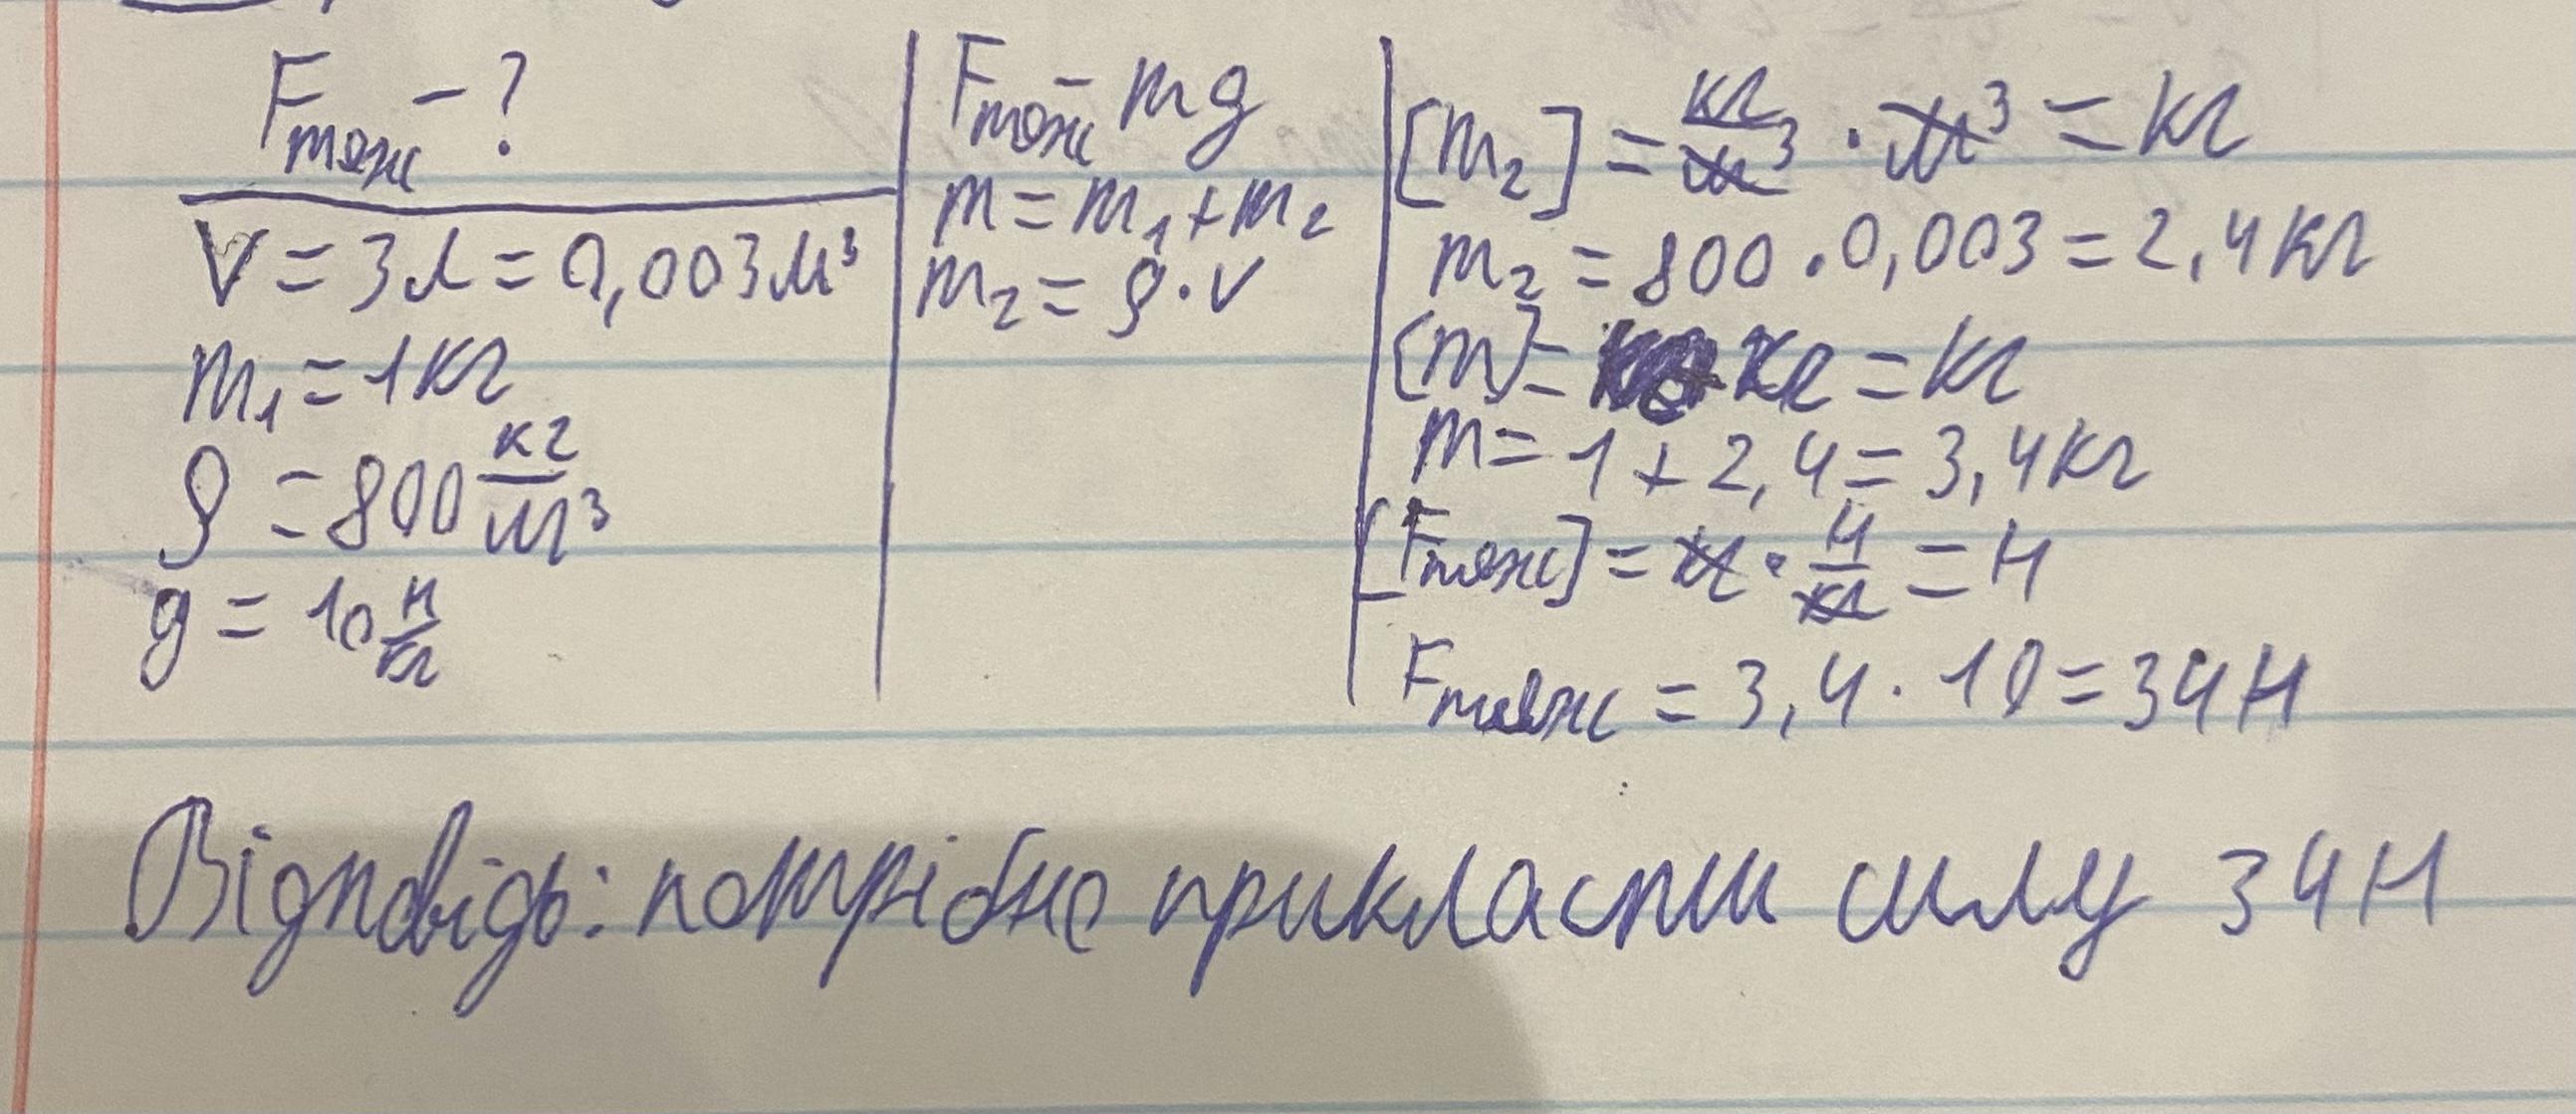 Fтяж - ?
V = 3л = 0,003 м³
m₁ = 1 кг
ρ = 800 кг/м³
g = 10 Н/кг
Fтяж = mg
m = m₁ + m₂
m₂ = ρ · V
[m₂] = кг/м³ · м³ = кг
m₂ = 800 · 0,003 = 2,4 кг
[m] = кг = кг
m = 1 + 2,4 = 3,4 кг
[Fтяж] = кг · Н/кг = Н
Fтяж = 3,4 · 10 = 34 Н
Відповідь: потрібно прикласти силу 34 Н